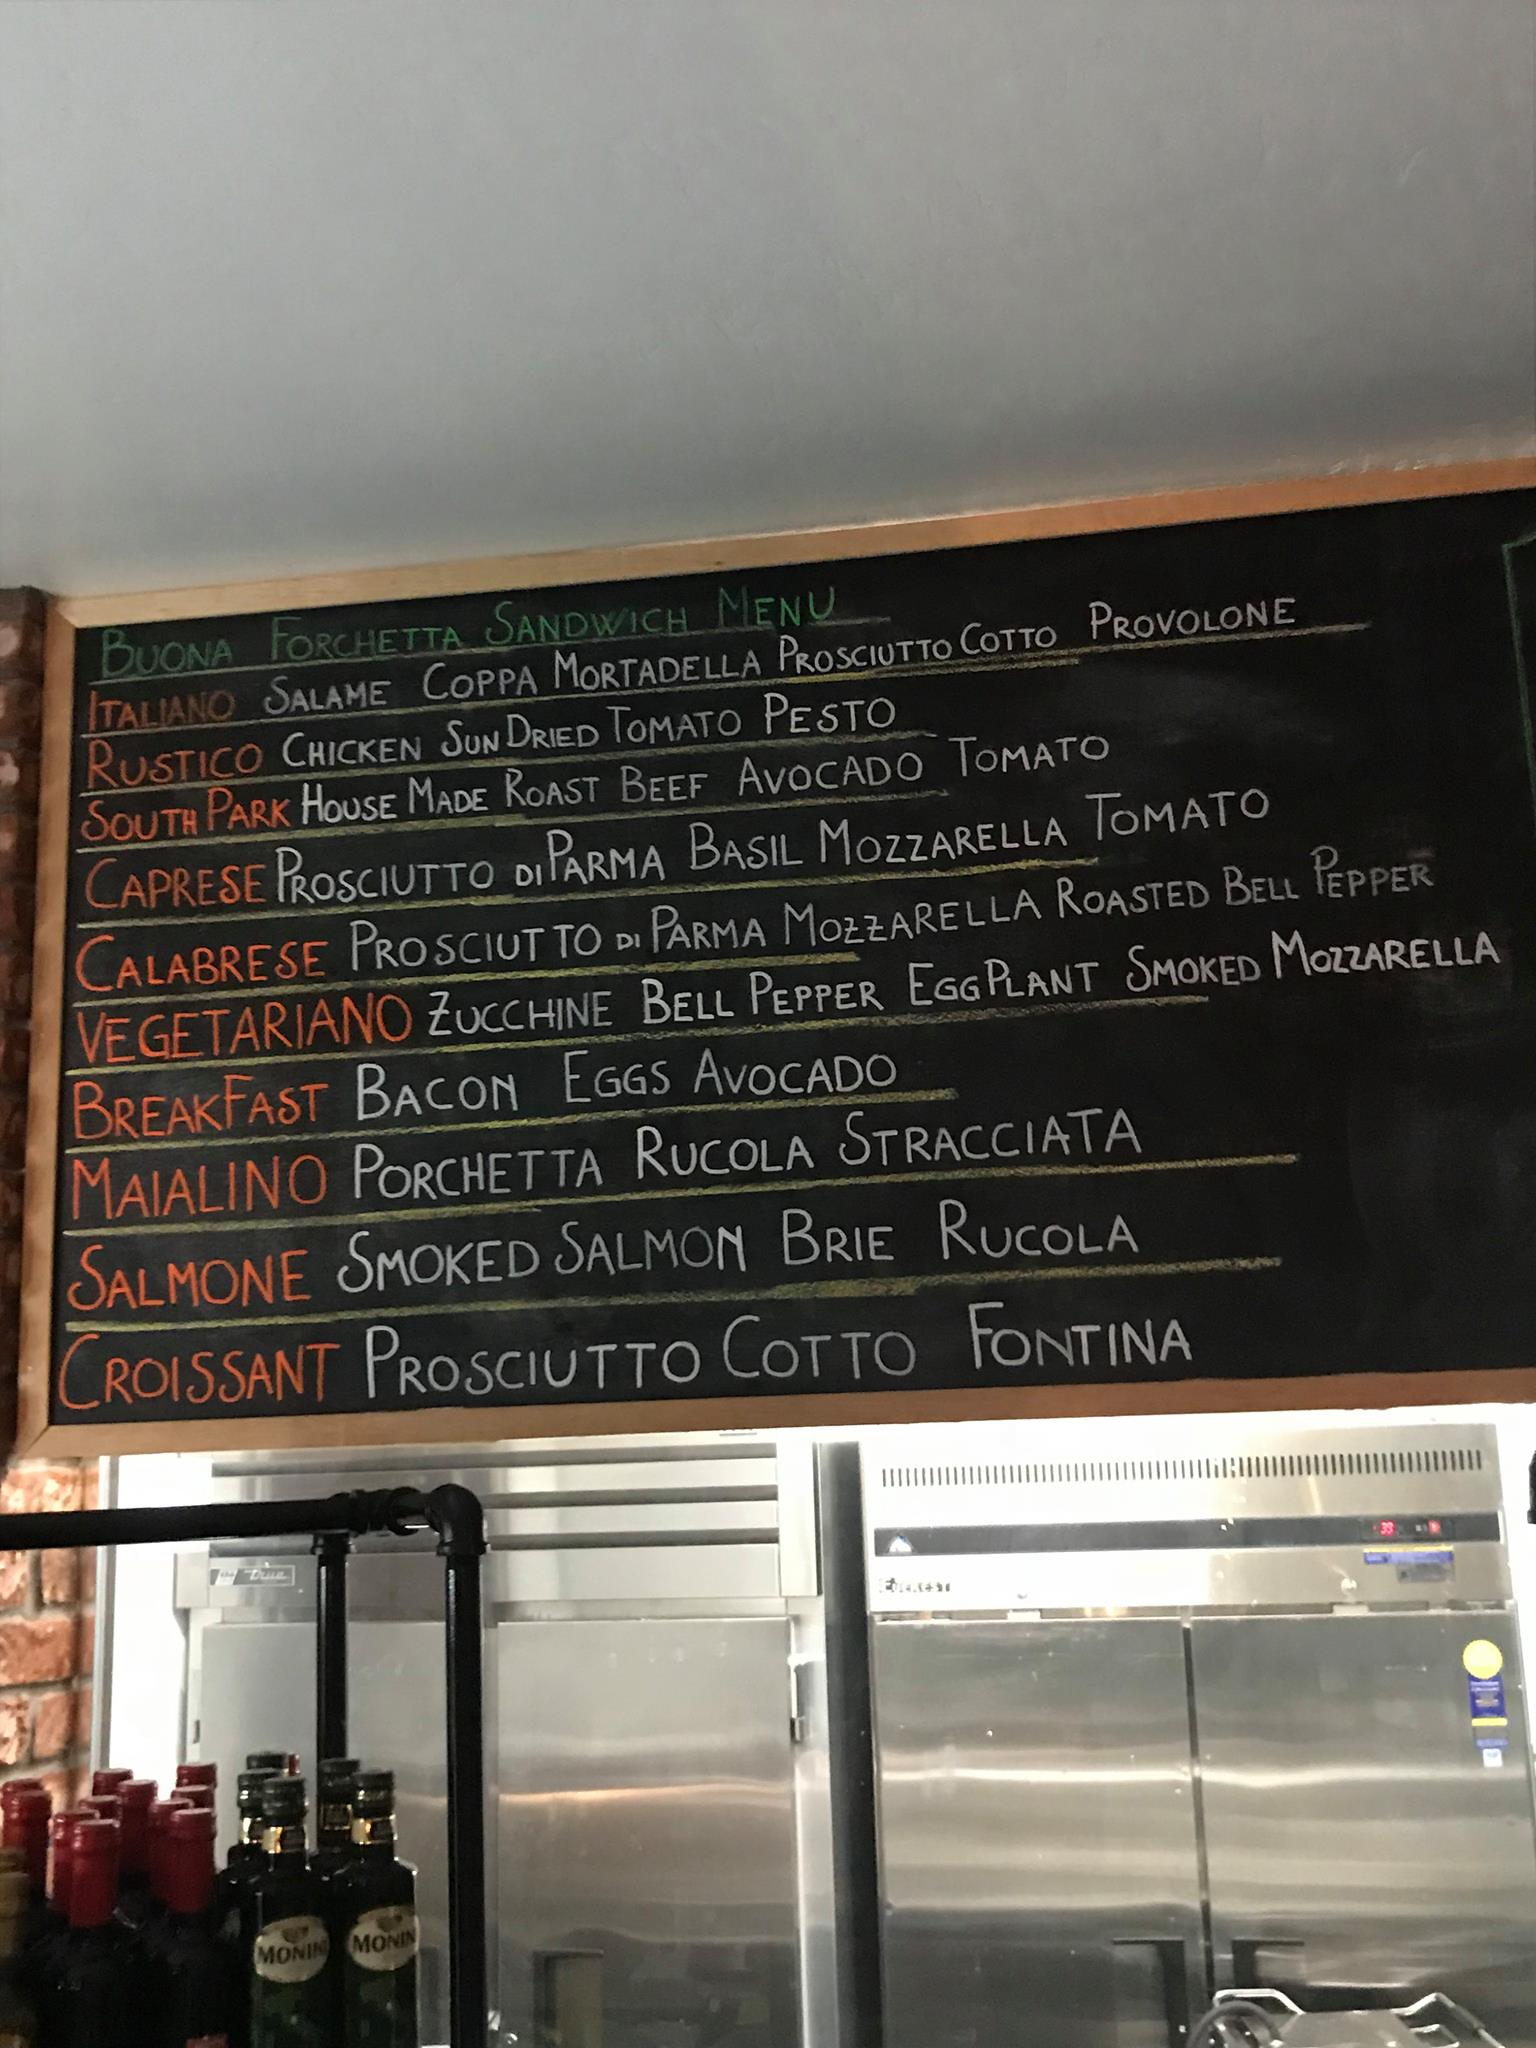 BUONA FORCHETTA SANDWICH MENU
ITALIANO SALAME COPPA MORTADELLA PROSCIUTTO COTTO PROVOLONE
RUSTICO CHICKEN SUN DRIED TOMATO PESTO
SOUTH PARK HOUSE MADE ROAST BEEF AVOCADO TOMATO
CAPRESE PROSCIUTTO DI PARMA BASIL MOZZARELLA TOMATO
CALABRESE PROSCIUTTO DI PARMA MOZZARELLA ROASTED BELL PEPPER
VEGETARIANO ZUCCHINE BELL PEPPER EGGPLANT SMOKED MOZZARELLA
BREAKFAST BACON EGGS AVOCADO
MAIALINO PORCHETTA RUCOLA STRACCIATA
SALMONE SMOKED SALMON BRIE RUCOLA
CROISSANT PROSCIUTTO COTTO FONTINA
True
39
EVEREST
MONINI MONINI